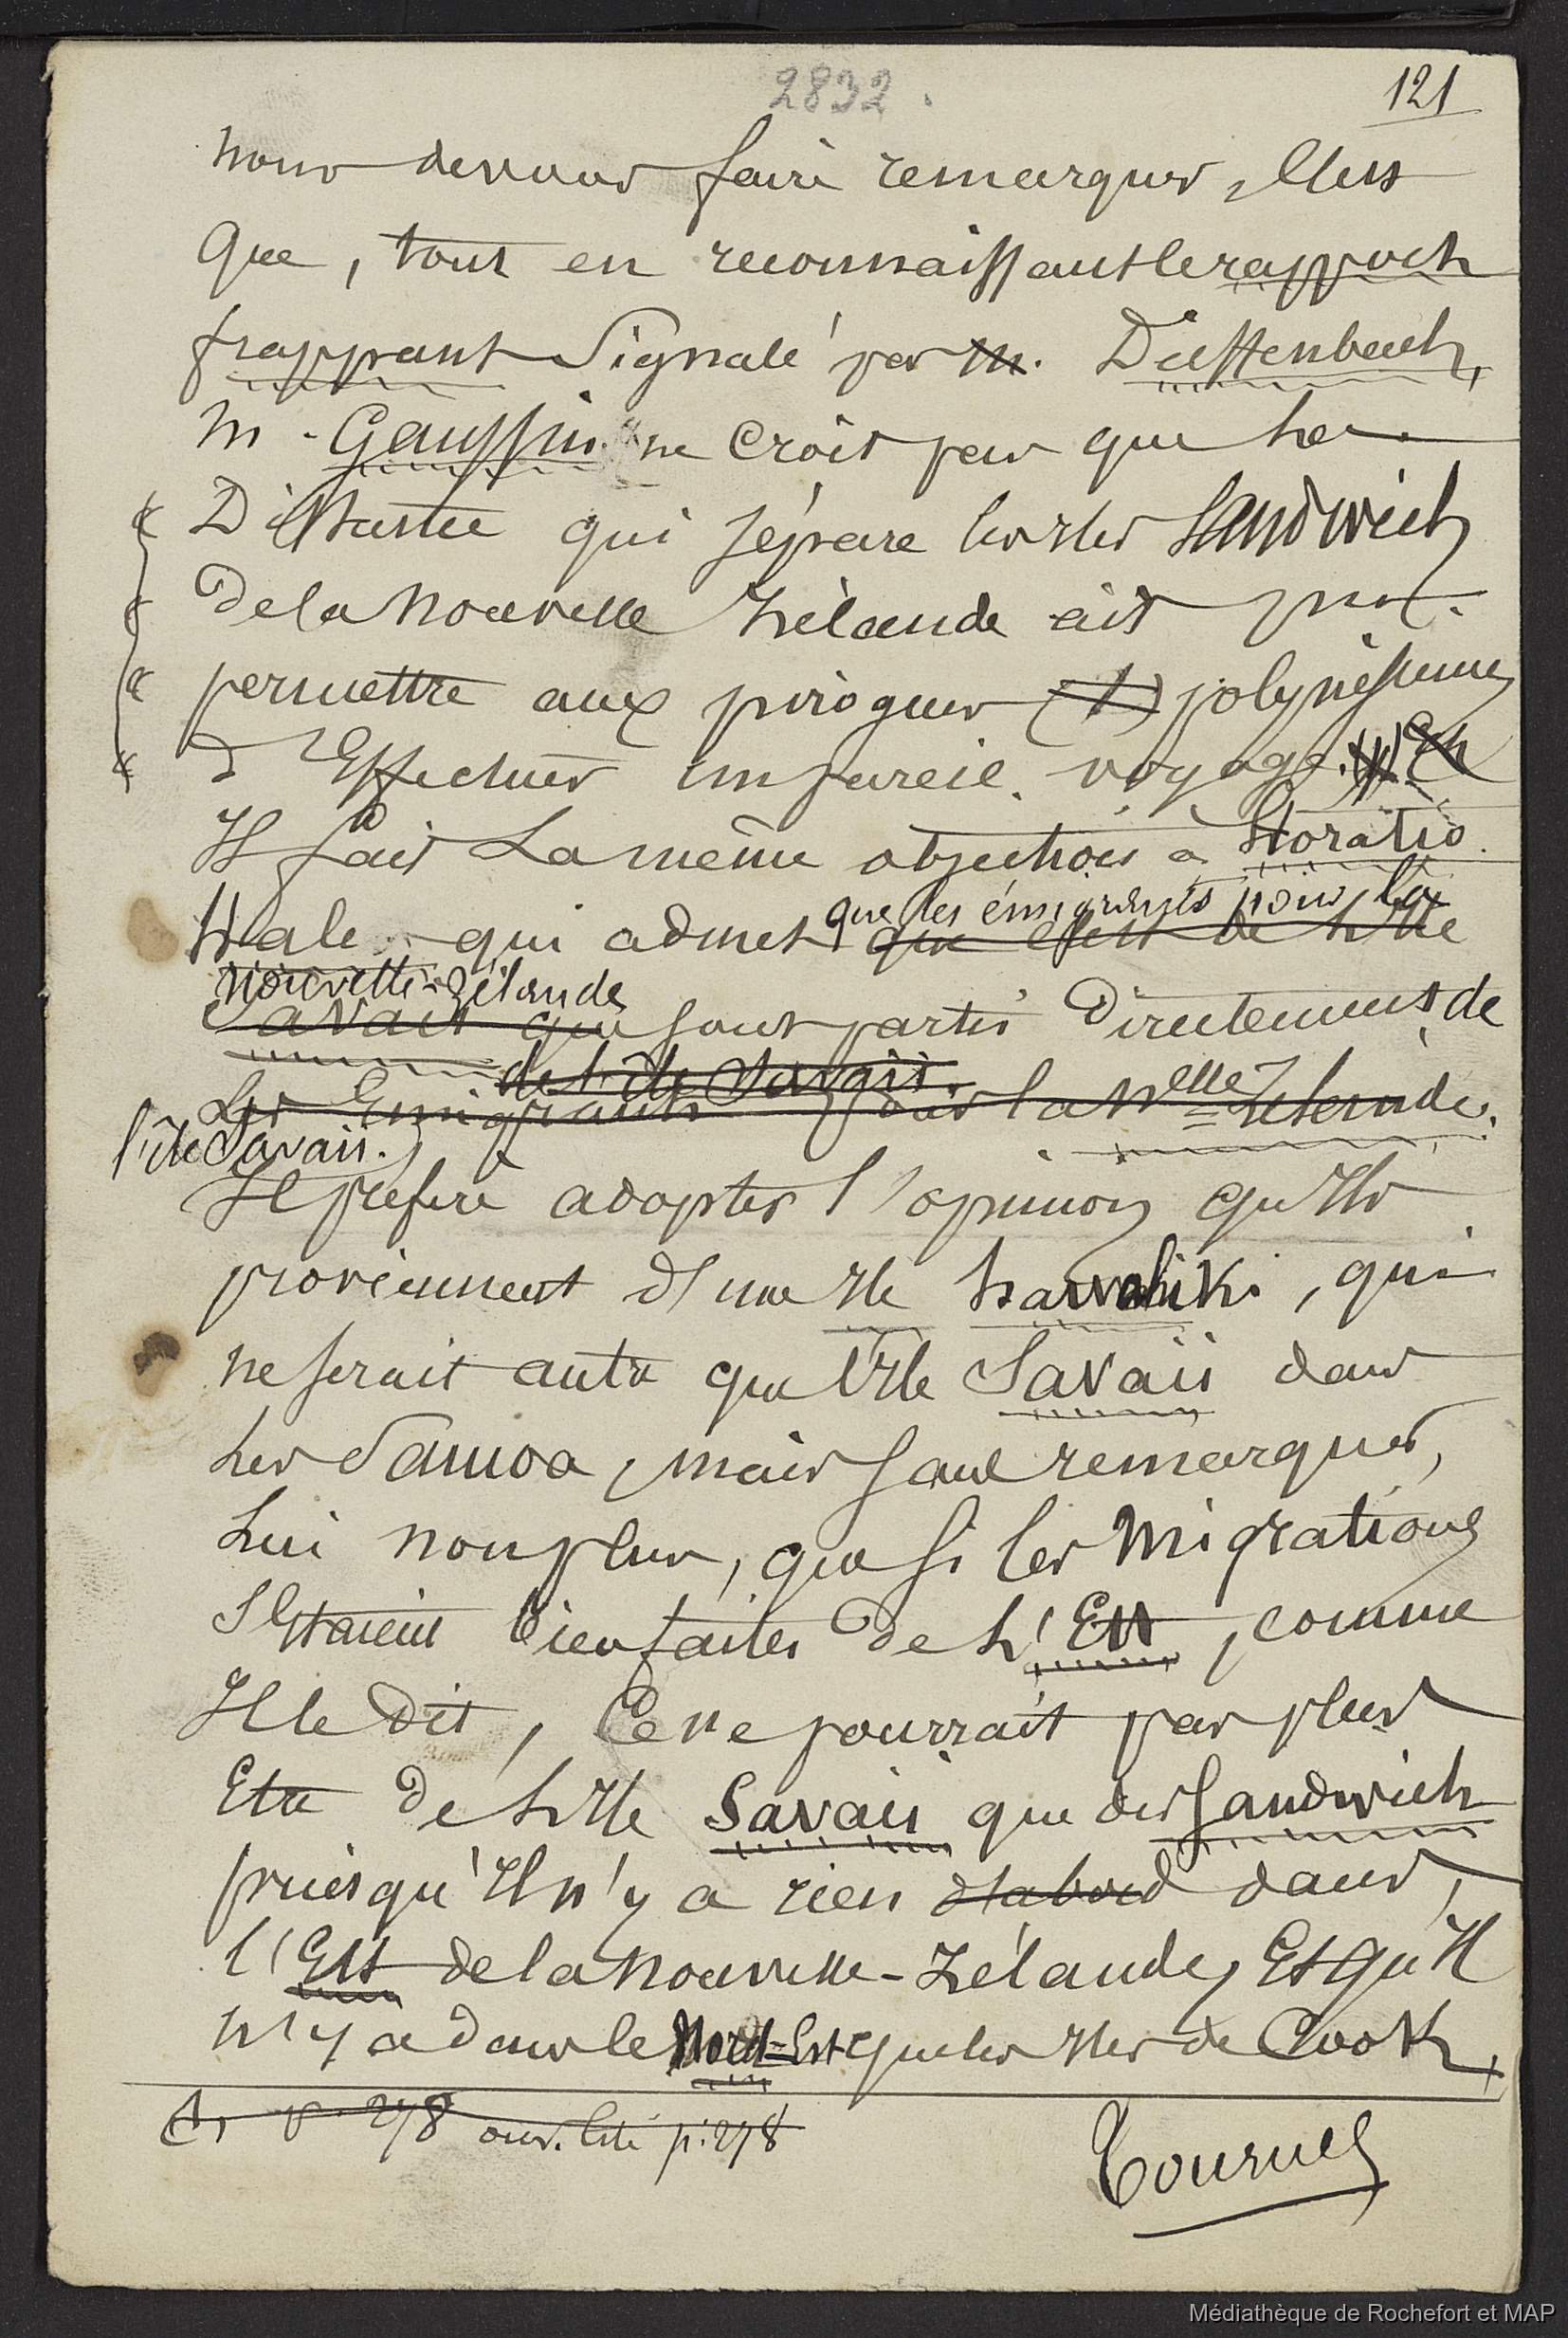 2832.
121
nous devons faire remarquer, c'est
que, tout en reconnaissant le rapproch
frappant signalé par M. Dieffenbach,
M. Gaussin ne croit pas que la
Distance qui sépare les Iles Sandwich
de la Nouvelle Zélande ait pu
permettre aux pirogues (1) polynésiennes
d'Effectuer un pareil voyage.
Il fait La même objection à Horatio
que les émigrants pour la
Hale, qui admet que c'est de l'Ile
Nouvelle-Zélande
Savaii que sont partis Directement de
de l'île Savaii.
Les Emigrants pour la Nelle Zélande.
l'île Savaii.
Il préfère adopter l'opinion qu'Ils
proviennent d'une Ile Hawahiki, qui
ne serait autre que l'Ile Savaii dans
Les Samoa, mais sans remarquer,
Lui non plus, que si les Migrations
s'Etaient bien faites de L'Est, comme
Il le dit, Ce ne pourrait pas plus
Etre de L'Ile Savaii que des Sandwich
puisqu'Il n'y a rien d'abord dans
l'Est de la Nouvelle-Zélande, Et qu'Il
n'y a dans le Nord-Est que les Iles de Cook,
(1) p. 278 ouv. cité p. 278
Tournez
Médiathèque de Rochefort et MAP